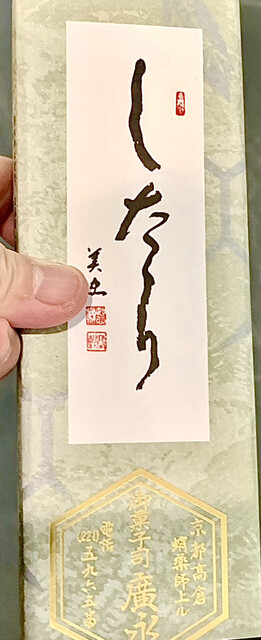 したゝり
京都高倉
蛸薬師上ル
御菓子司 廣永
電話
(221)五九六五番